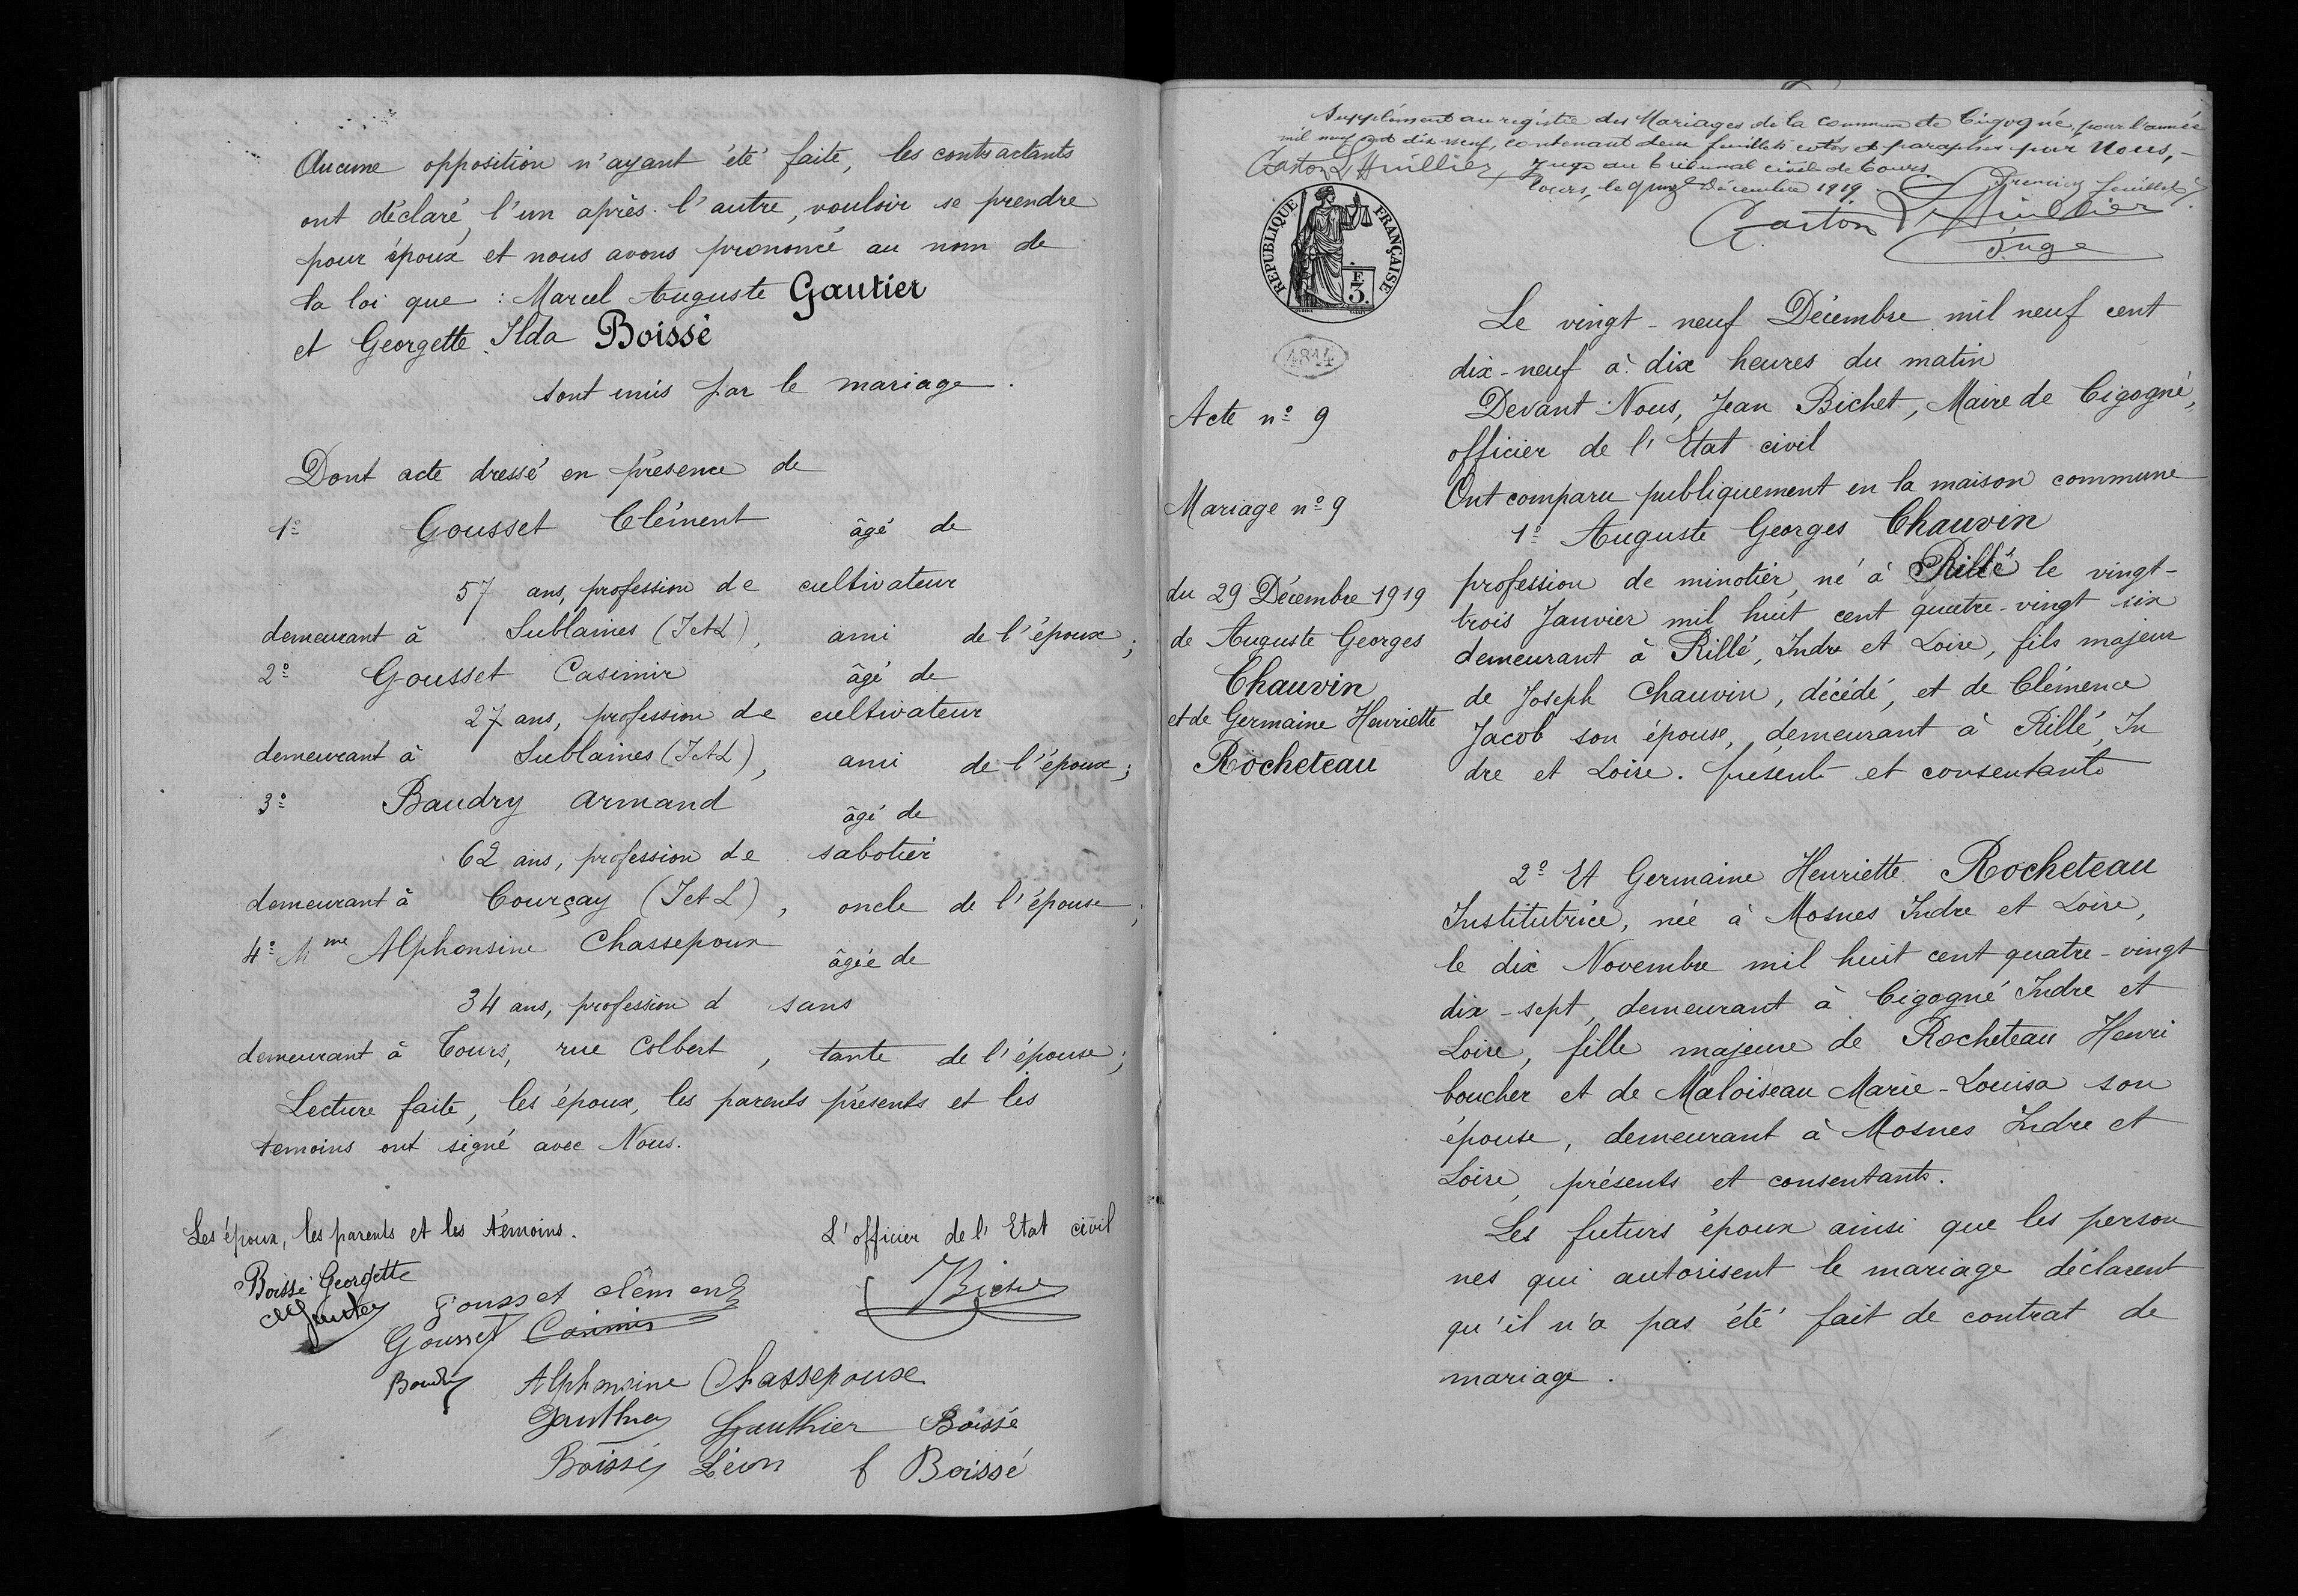 Aucune opposition n'ayant été faite, les contractants
ont déclaré l'un après l'autre, vouloir se prendre
pour époux et nous avons prononcé au nom de
la loi que : Marcel Auguste Gautier
et Georgette Ilda Boissé
sont unis par le mariage.
Dont acte dressé en présence de
1º Gousset Clément âgé de
57 ans, profession de cultivateur
demeurant à Sublaines (I et L), ami de l'époux;
2º Gousset Casimir âgé de
27 ans, profession de cultivateur
demeurant à Sublaines (I et L), ami de l'époux;
3º Baudry Armand âgé de
62 ans, profession de sabotier
demeurant à Courçay (I et L), oncle de l'épouse;
4º Mme Alphonsine Chassepoux âgée de
34 ans, profession d sans
demeurant à Tours, rue Colbert, tante de l'épouse;
Lecture faite, les époux, les parents présents et les
temoins ont signé avec Nous.
Les époux, les parents et les témoins. L'officier de l'Etat civil
Boissé Georgette
Gousset Clément
Gousset Casimir
Alphonsine Chassepoux
Gauthier Boissé
Boissé Léon f Boissé
Supplément au registre des Mariages de la Commune de Cigogné, pour l'année
mil neuf cent dix neuf, contenant deux feuillets cotés et paraphés par Nous,
Gaston Lhuillier, Juge au tribunal civil de Tours.
Tours, le quinze Décembre 1919. Premier feuillet
Gaston Lhuillier
Juge
REPUBLIQUE FRANÇAISE
F
3.
4814
Acte nº 9
Mariage nº 9
du 29 Décembre 1919
de Auguste Georges
Chauvin
et de Germaine Henriette
Rocheteau
Le vingt-neuf Décembre mil neuf cent
dix-neuf à dix heures du matin
Devant Nous, Jean Bichet, Maire de Cigogné,
officier de l'Etat civil
Ont comparu publiquement en la maison commune
1º Auguste Georges Chauvin
profession de minotier, né à Rillé le vingt-
trois Janvier mil huit cent quatre-vingt six
demeurant à Rillé, Indre et Loire, fils majeur
de Joseph Chauvin, décédé, et de Clémence
Jacob son épouse, demeurant à Rillé, In
dre et Loire. présente et consentante
2º Et Germaine Henriette Rocheteau
Institutrice, née à Mosnes Indre et Loire,
le dix Novembre mil huit cent quatre-vingt
dix-sept, demeurant à Cigogné Indre et
Loire, fille majeure de Rocheteau Henri
boucher et de Maloiseau Marie-Louisa son
épouse, demeurant à Mosnes Indre et
Loire, présents et consentants.
Les futurs époux ainsi que les person
nes qui autorisent le mariage déclarent
qu'il n'a pas été fait de contrat de
mariage.